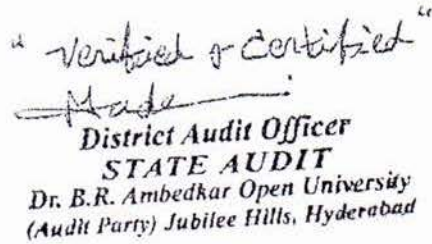 "Verified & Certified"
District Audit Officer
STATE AUDIT
Dr. B.R. Ambedkar Open University
(Audit Party) Jubilee Hills, Hyderabad